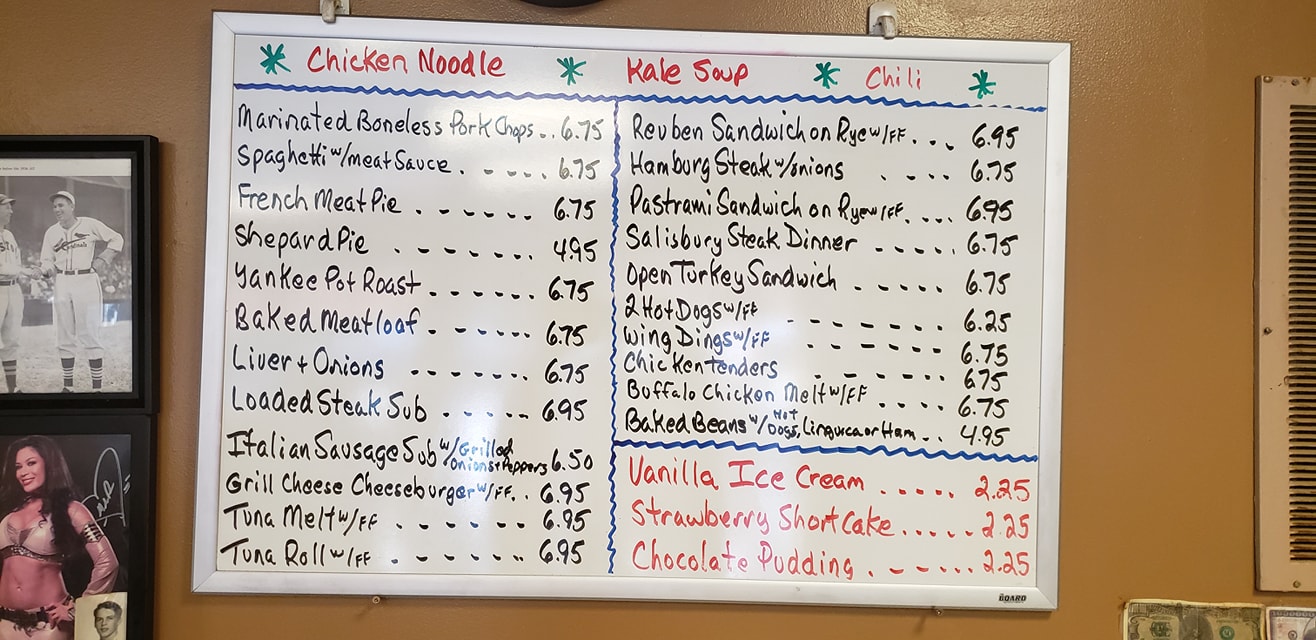 * Chicken Noodle * Kale Soup * Chili *
Marinated Boneless Pork Chops .. 6.75
Spaghetti w/meat Sauce . - - . . . 6.75
French Meat Pie . - - - - - 6.75
Shepard Pie - - - - - - - 4.95
Yankee Pot Roast . - - - . . 6.75
Baked Meatloaf . - - - - - 6.75
Liver + Onions - - - - - - - 6.75
Loaded Steak Sub . - - - - 6.95
Italian Sausage Sub w/Grilled
Onions+Peppers 6.50
Grill Cheese Cheeseburger w/FF. . 6.95
Tuna Melt w/FF - - - - - - 6.95
Tuna Roll w/FF . - - - - - 6.95
Reuben Sandwich on Rye w/FF . . . 6.95
Hamburg Steak w/onions . - - - 6.75
Pastrami Sandwich on Rye w/FF. . . . 6.95
Salisbury Steak Dinner - - - - . 6.75
Open Turkey Sandwich - - - - - 6.75
2 Hot Dogs w/FF - - - - - - - 6.25
Wing Dings w/FF - - - - - - 6.75
Chicken tenders - - - - - - 6.75
Buffalo Chicken Melt w/FF - - - - 6.75
Baked Beans w/Hot Dogs, Linguica or Ham . . 4.95
Vanilla Ice Cream . . . . . 2.25
Strawberry Short Cake . . . . . 2.25
Chocolate Pudding . - - . . . 2.25
BOARD
Cardinals